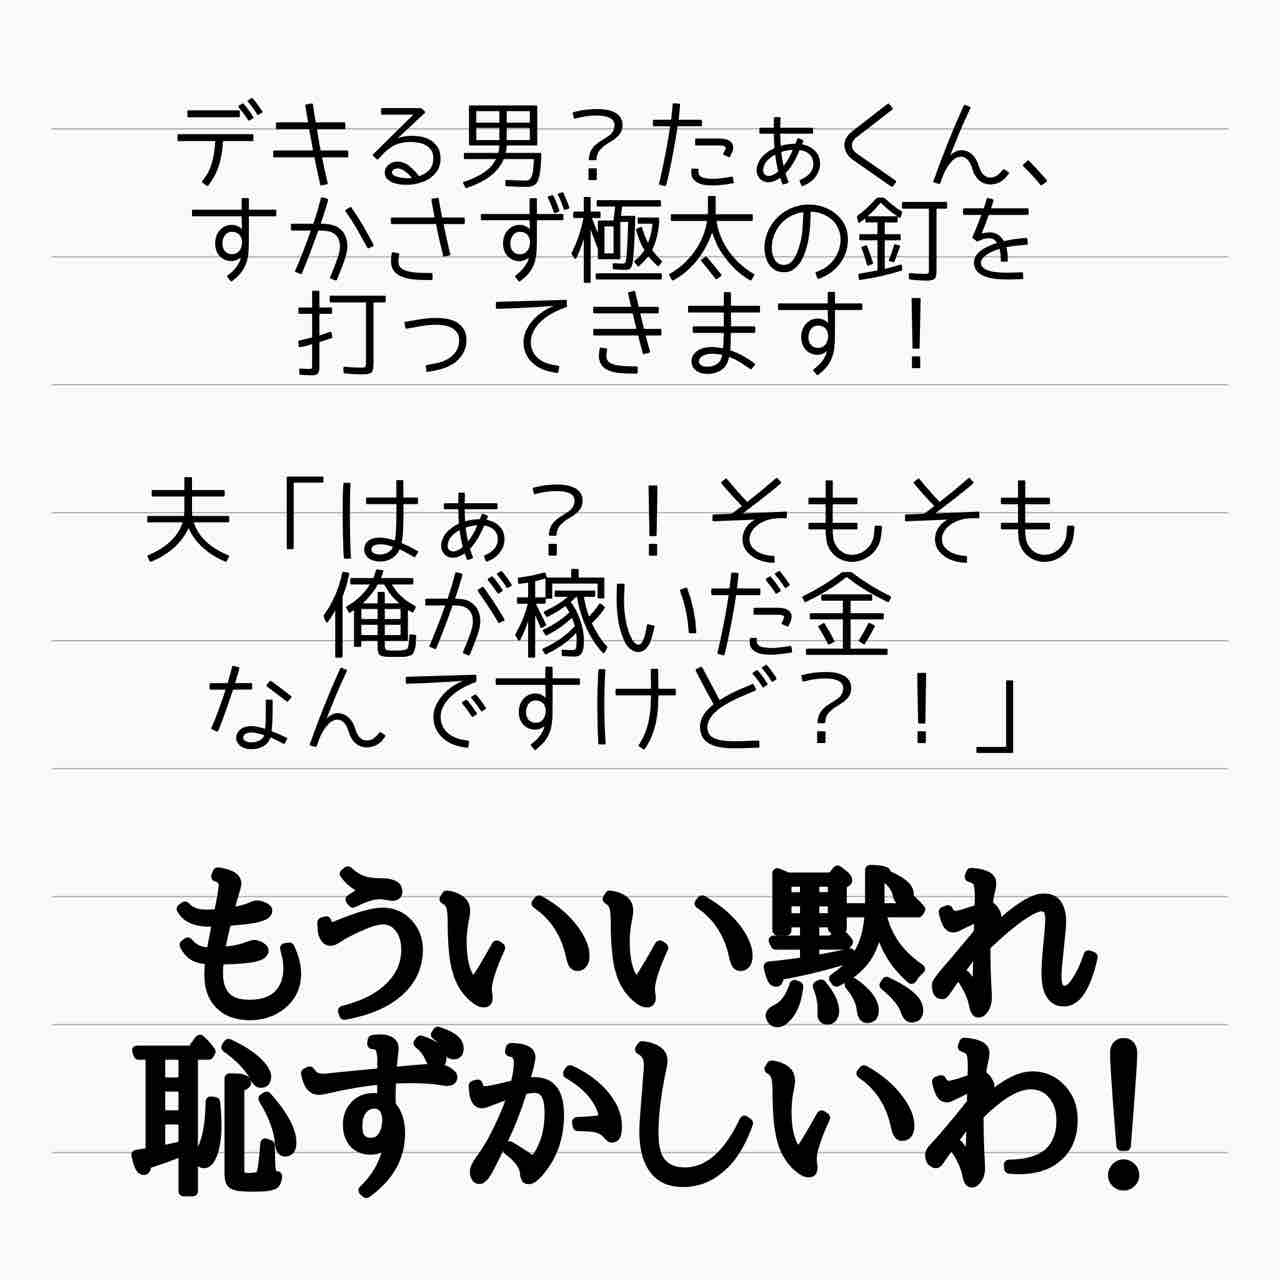 デキる男？たぁくん、
すかさず極太の釘を
打ってきます！
夫「はぁ？！そもそも
俺が稼いだ金
なんですけど？！」
もういい黙れ
恥ずかしいわ！